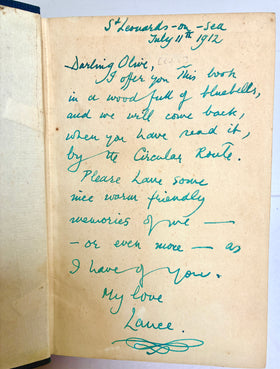 St Leonards-on-Sea
July 11th 1912
Darling Olive,
I offer you this book
in a wood full of bluebells,
and we will come back,
when you have read it,
by the Circular Route.
Please have some
nice warm friendly
memories of me —
— or even more — as
I have of you.
My love
Lance.